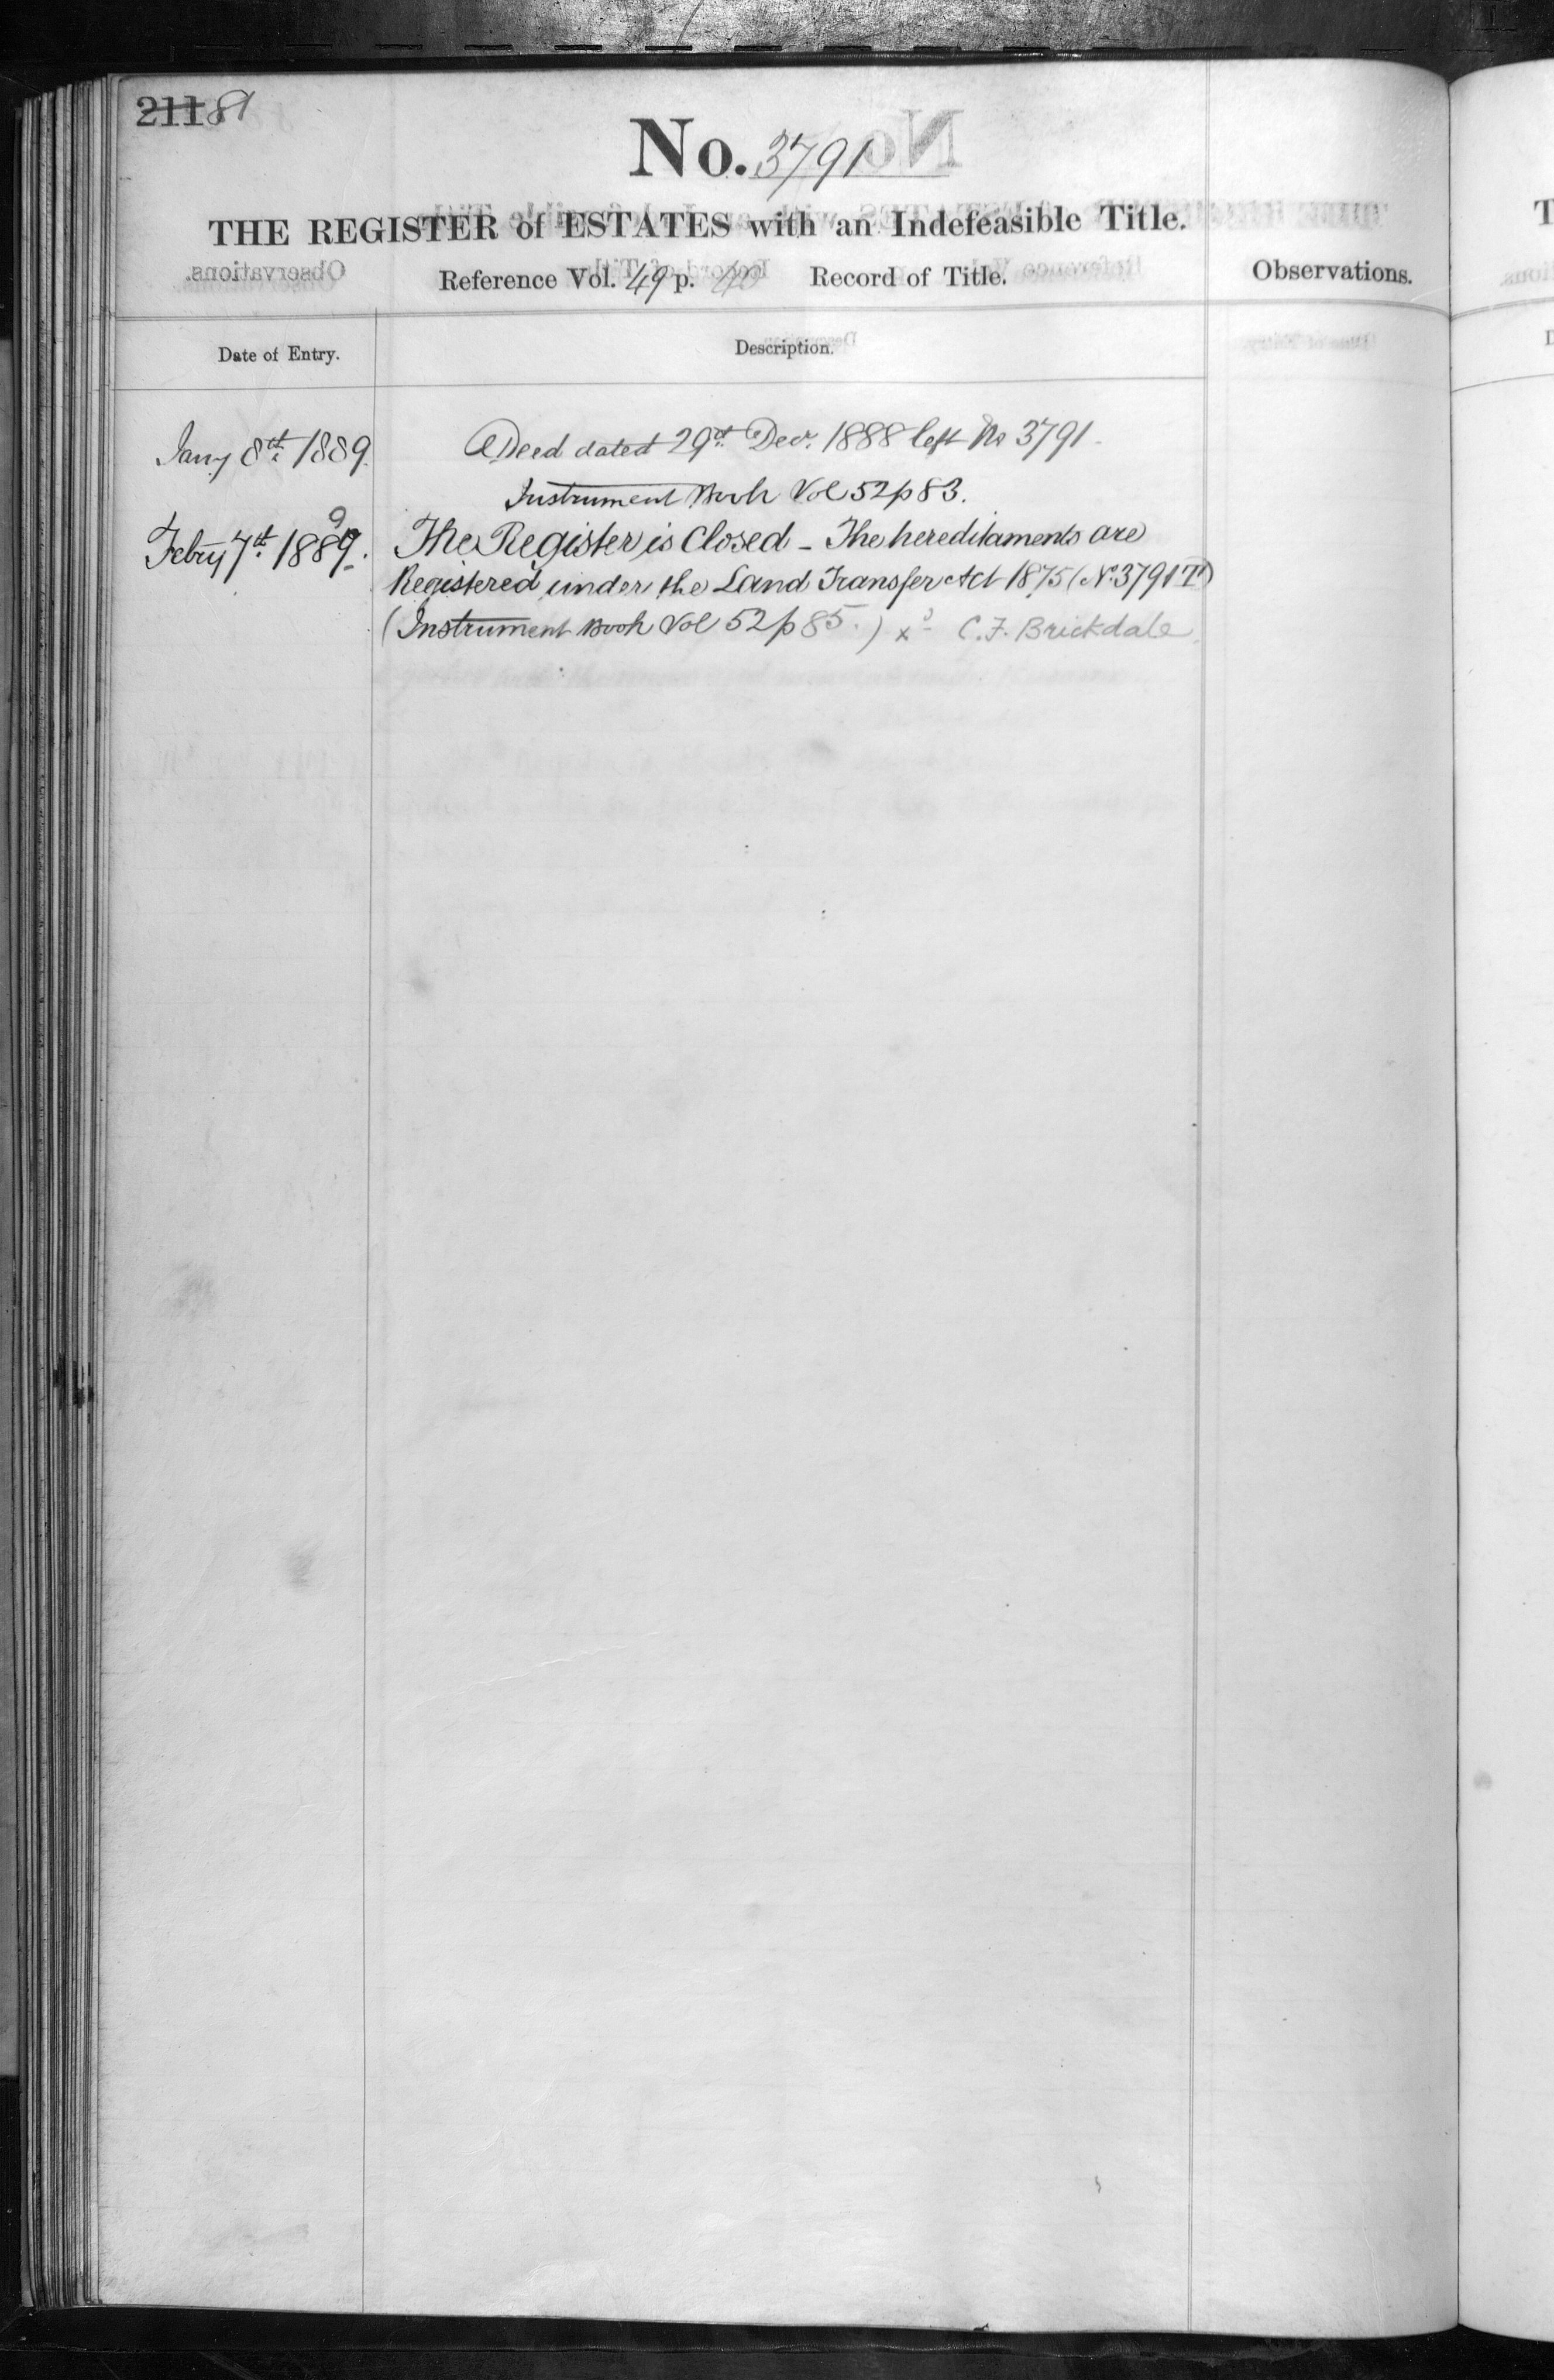 211 81
No. 3791
THE REGISTER of ESTATES with an Indefeasible Title.
Reference Vol. 49 p. 40 Record of Title.
Observations.
Date of Entry.
Description.
Jany 8th 1889.
A Deed dated 29th Decr. 1888 left No 3791.
Instrument Book Vol 52 p 83.
Febry 7th 1889.
The Register is Closed - The hereditaments are
Registered under the Land Transfer Act 1875 (No. 3791 T)
(Instrument Book Vol 52 p 85.) xd C.F. Brickdale